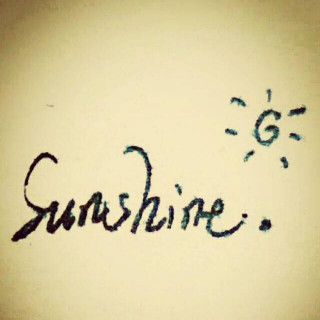 G
Sunshine.